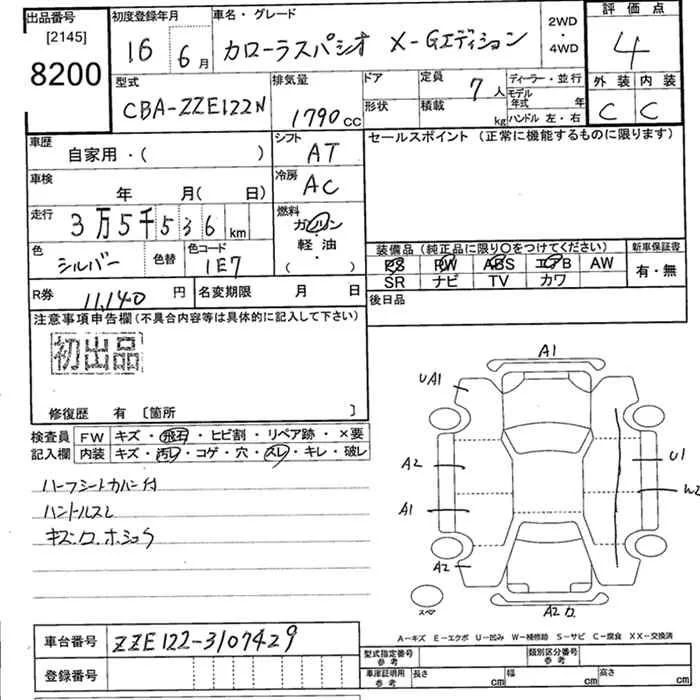 出品番号
[2145]
8200
初度登録年月
16 6月
車名・グレード
カローラスパシオ X-Gエディション
2WD
・
4WD
評価点
4
外装 内装
C C
型式
CBA-ZZE122N
排気量
1790cc
ドア
形状
定員
7人
積載
kg
ディーラー・並行
モデル年式 年
ハンドル 左・右
車歴
自家用・( )
シフト
AT
車検
年 月( 日)
冷房
AC
走行
3万5千536km
燃料
ガソリン
・
軽油
( )
色
シルバー
色替
色コード
1E7
セールスポイント(正常に機能するものに限ります)
装備品(純正品に限り○をつけてください)
新車保証書
PS PW ABS エアB AW
SR ナビ TV カワ
有・無
R券
11,140円
名変期限 月 日
後日品
注意事項申告欄(不具合内容等は具体的に記入して下さい)
初出品
修復歴 有〔箇所 〕
検査員
記入欄
FW キズ・飛石・ヒビ割・リペア跡・×要
内装 キズ・汚レ・コゲ・穴・スレ・キレ・破レ
ハーフシートカバー付
ハンドルスレ
A1
UA1
A2
A1
A2
U1
W2
A2
スペア
A-キズ E-エクボ U-凹み W-補修跡 S-サビ C-腐食 XX-交換済
車台番号
ZZE122-3107429
登録番号
型式指定番号
参考
類別区分番号
参考
車庫証明用
参考
長さ cm
幅 cm
高さ cm